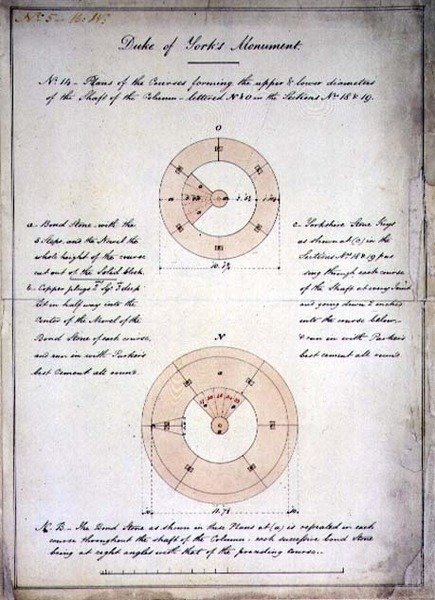 No 5. 16. W.
Duke of York's Monument.
No 14 - Plans of the Courses forming the upper & lower diameters
of the Shaft of the Column - lettered N & O in the Sections Nos 18 & 19.
O
a - Bond Stone - with the
5 Steps and the Newel the
whole height of the course
cut out of the Solid block.
b - Copper plugs 2 Sqr 3 deep
let in half way into the
Center of the Newel of the
Bond Stone of each course,
and run in with Parker's
best Cement all round.
c - Yorkshire Stone Keys
as shown at (c) in the
Sections Nos 18 & 19 pas
sing through each course
of the Shaft at every Joint
and going down 2 inches
into the course below,
& run in with Parker's
best cement all round
N
N.B - The Bond Stone as shown in these Plans at (a) is repeated in each
course throughout the shaft of the Column - each successive bond Stone
being at right angles with that of the preceding course..